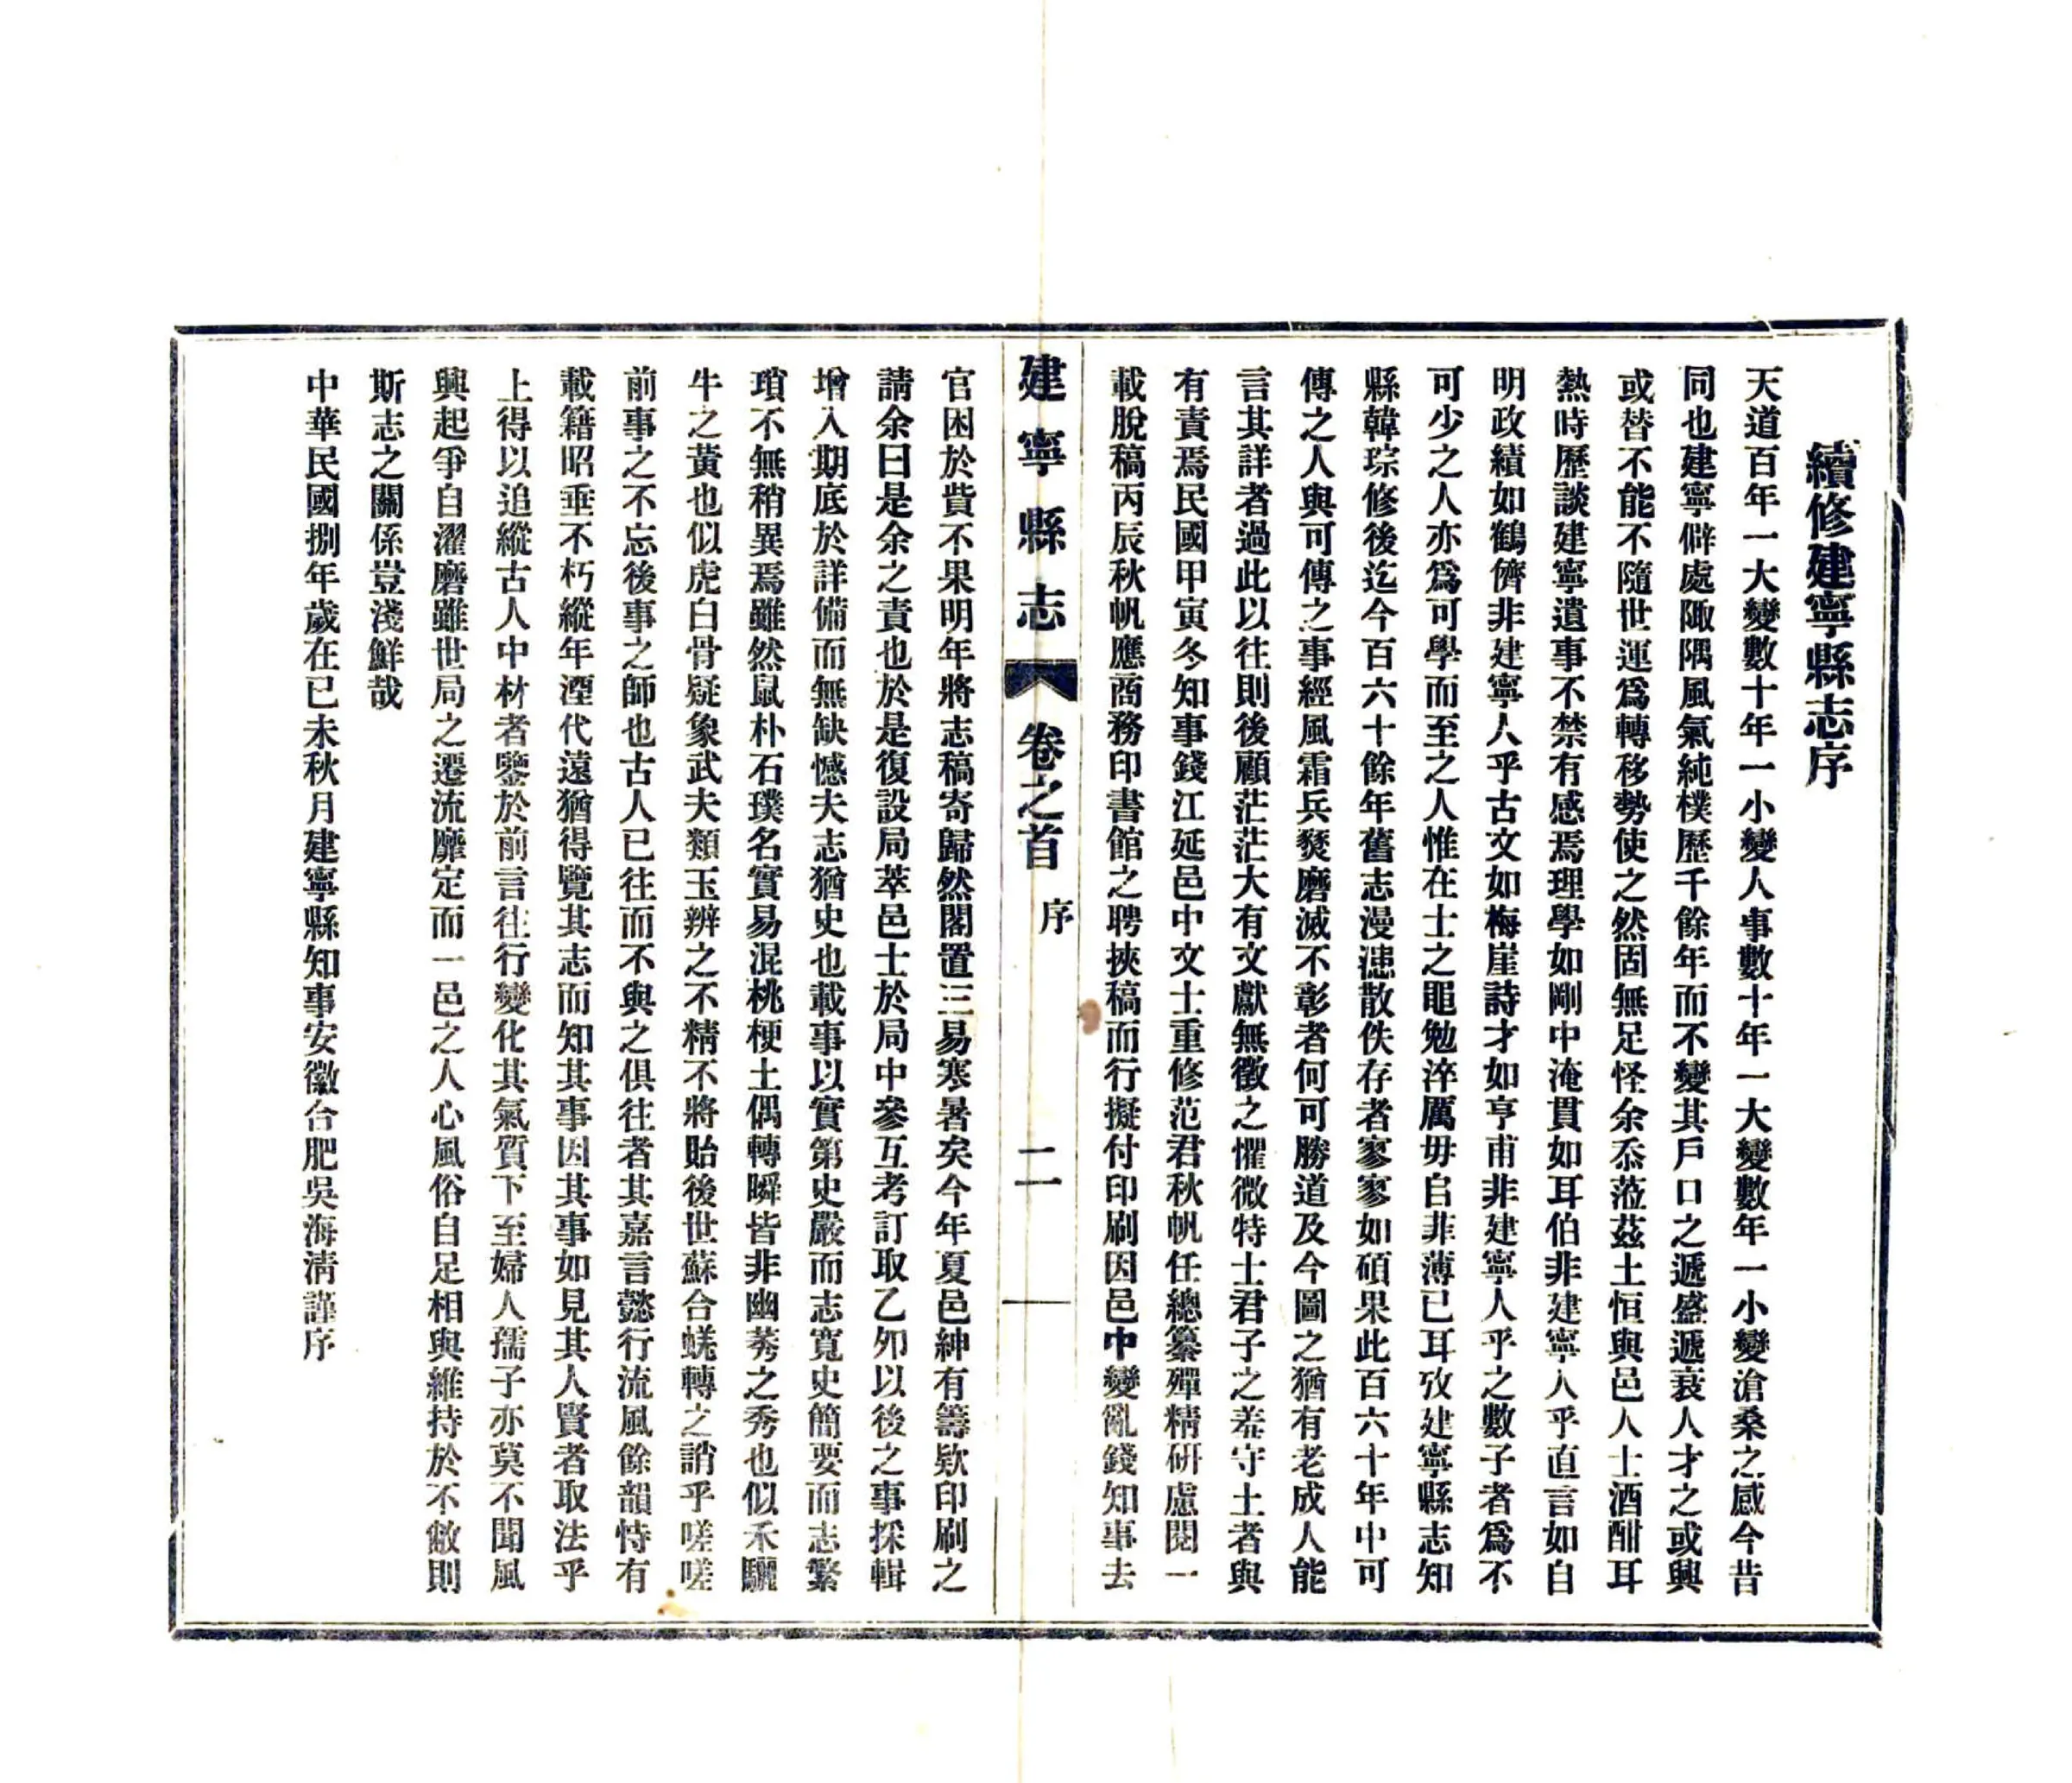 續修建寧縣志序
天道百年一大變數十年一小變人事數十年一大變數年一小變滄桑之感今昔
同也建寧僻處陬隅風氣純樸歷千餘年而不變其戶口之遞盛遞衰人才之或興
或替不能不隨世運爲轉移勢使之然固無足怪余忝蒞茲土恒與邑人士酒酣耳
熱時歷談建寧遺事不禁有感焉理學如剛中淹貫如耳伯非建寧人乎直言如自
明政績如鶴儕非建寧人乎古文如梅崖詩才如亨甫非建寧人乎之數子者爲不
可少之人亦爲可學而至之人惟在士之黽勉淬厲毋自菲薄已耳攷建寧縣志知
縣韓琮修後迄今百六十餘年舊志漫漶散佚存者寥寥如碩果此百六十年中可
傳之人與可傳之事經風霜兵燹磨滅不彰者何可勝道及今圖之猶有老成人能
言其詳者過此以往則後顧茫茫大有文獻無徵之懼微特士君子之羞守土者與
有責焉民國甲寅冬知事錢江延邑中文士重修范君秋帆任總纂殫精研慮閱一
載脫稿丙辰秋帆應商務印書館之聘挾稿而行擬付印刷因邑中變亂錢知事去
建寧縣志 卷之首 序 二
官困於貲不果明年將志稿寄歸然閣置三易寒暑矣今年夏邑紳有籌欵印刷之
請余曰是余之責也於是復設局萃邑士於局中參互考訂取乙夘以後之事採輯
增入期底於詳備而無缺憾夫志猶史也載事以實第史嚴而志寬史簡要而志繁
瑣不無稍異焉雖然鼠朴石璞名實易混桃梗土偶轉瞬皆非幽莠之秀也似禾驪
牛之黃也似虎白骨疑象武夫類玉辨之不精不將貽後世蘇合蜣轉之誚乎嗟嗟
前事之不忘後事之師也古人已往而不與之俱往者其嘉言懿行流風餘韻恃有
載籍昭垂不朽縱年湮代遠猶得覽其志而知其事因其事如見其人賢者取法乎
上得以追縱古人中材者鑒於前言往行變化其氣質下至婦人孺子亦莫不聞風
興起爭自濯磨雖世局之遷流靡定而一邑之人心風俗自足相與維持於不敝則
斯志之關係豈淺鮮哉
中華民國捌年歲在已未秋月建寧縣知事安徽合肥吳海清謹序